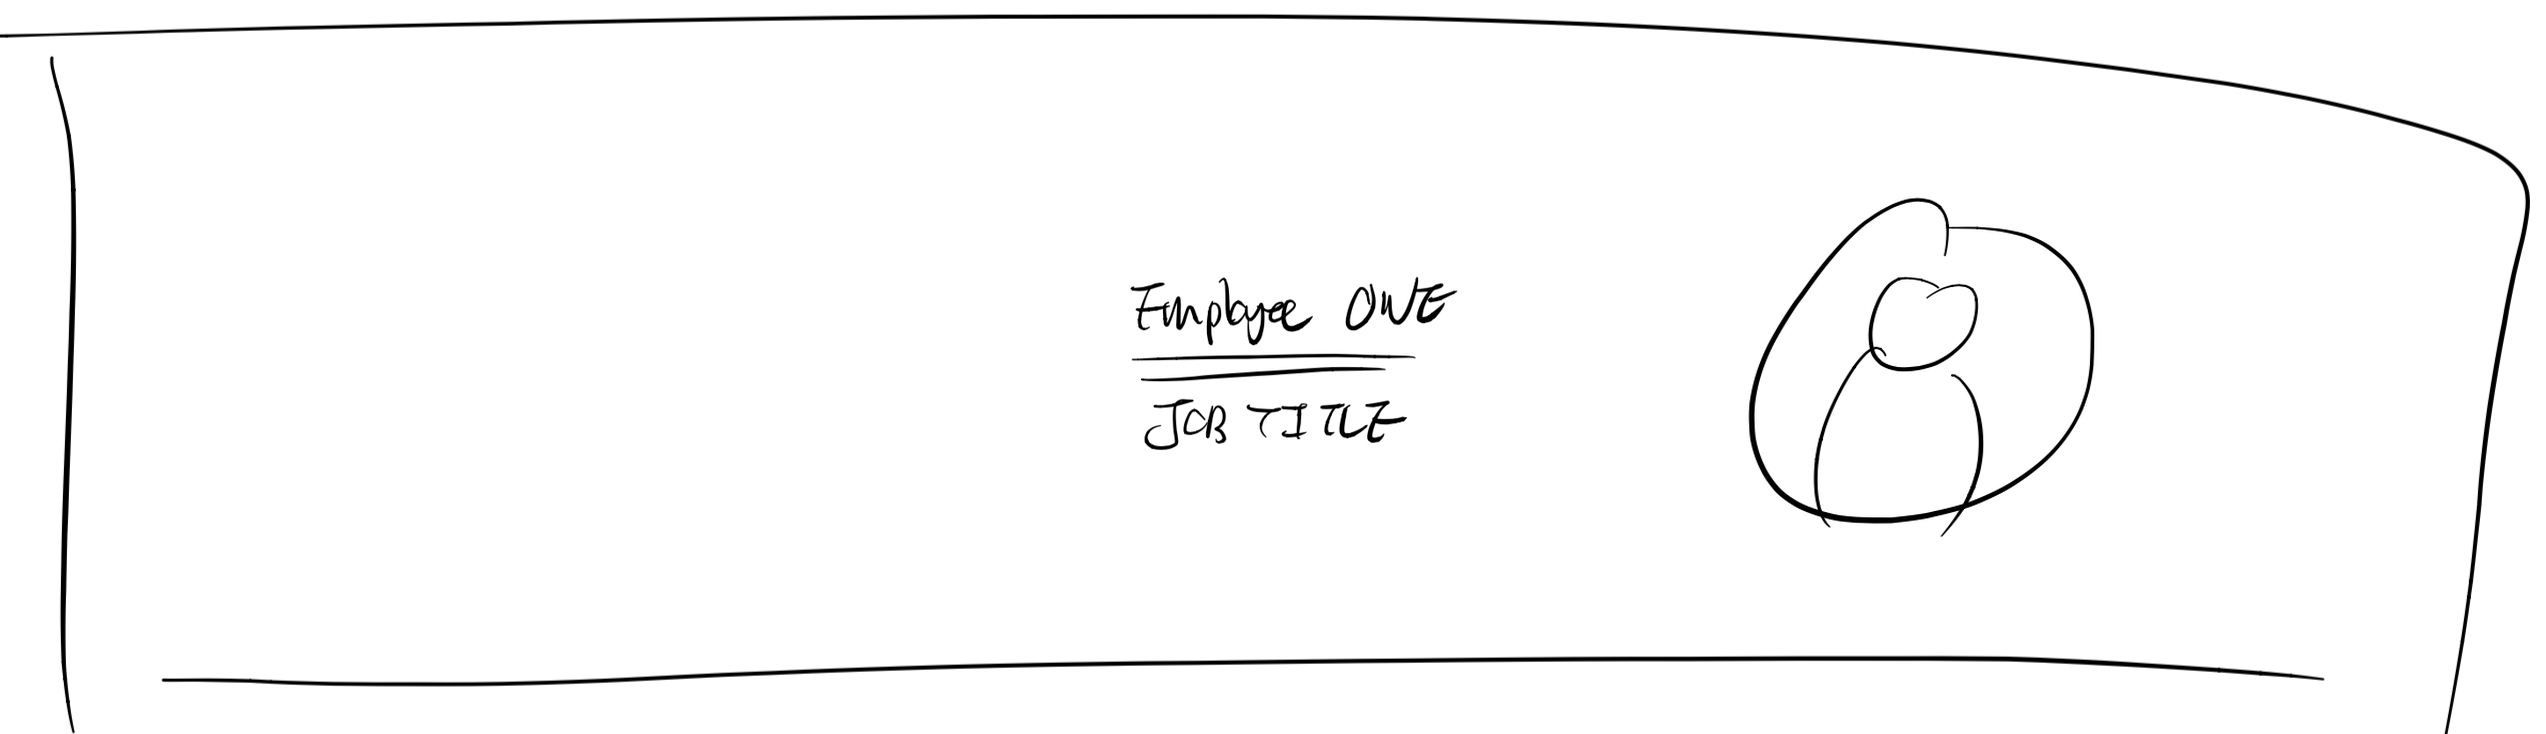 Employee ONE
JOB TITLE